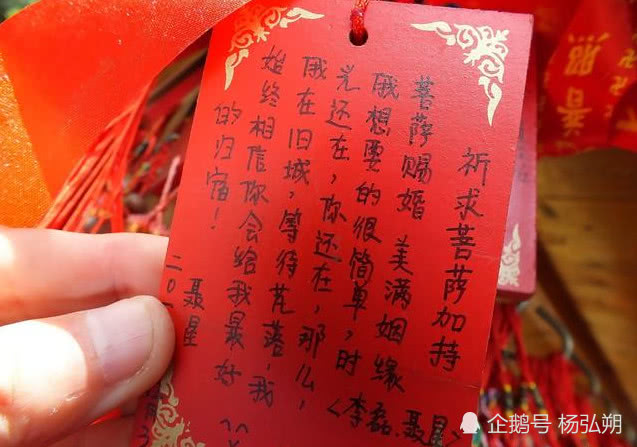 祈求菩萨加持
菩萨赐婚 美满姻缘
<李磊.聂星
俄想要的很简单,时
光还在,你还在,那么,
俄在旧城,等待落,我
始终相信你会给我最好
的归宿!
聂星
二〇
普照
企鹅号 杨弘朔